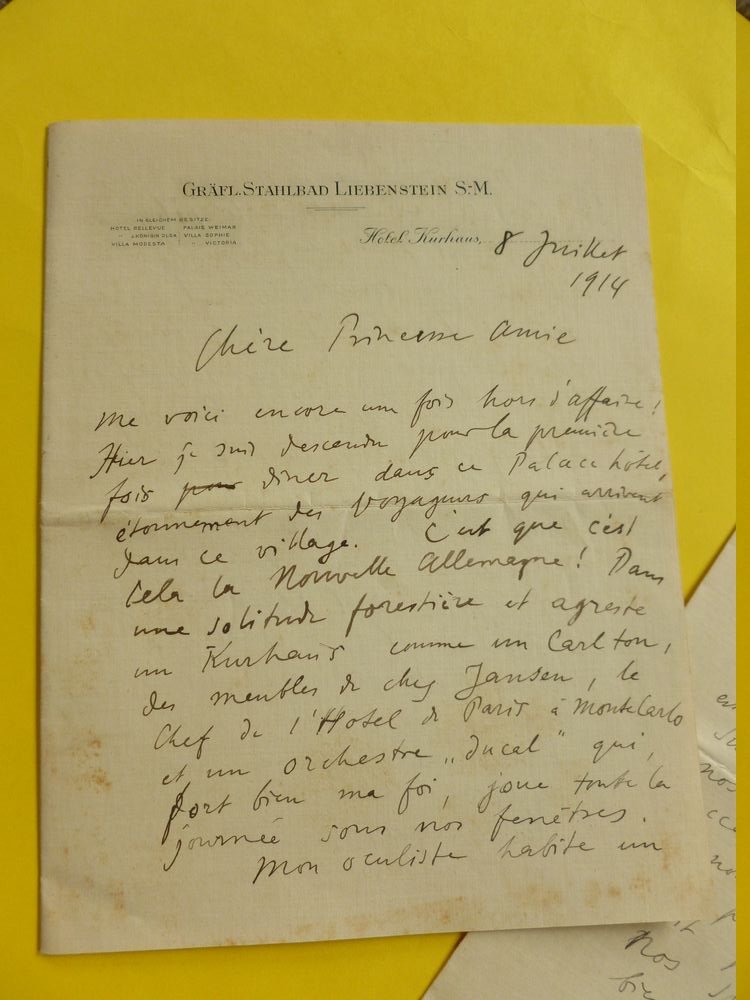 GRÄFL. STAHLBAD LIEBENSTEIN S.-M.
IN GLEICHEM BESITZE:
HOTEL BELLEVUE PALAIS WEIMAR
" KÖNIGIN OLGA VILLA SOPHIE
VILLA MODESTA " VICTORIA
Hotel Kurhaus, 8 Juillet
1914
Chère Princesse Amie
me voici encore une fois hors d'affaire!
Hier je suis descendu pour la première
fois pour diner dans ce Palace hôtel,
étonnement des voyageurs qui arrivent
dans ce village. C'est que c'est
cela la Nouvelle Allemagne! Dans
une solitude forestière et agreste
un Kurhaus comme un Carlton,
des meubles de chez Jansen, le
Chef de l'Hotel de Paris à MonteCarlo
et un orchestre „ducal" qui,
fort bien ma foi, joue toute la
journée sous nos fenêtres.
Mon oculiste habite un
nos
nos